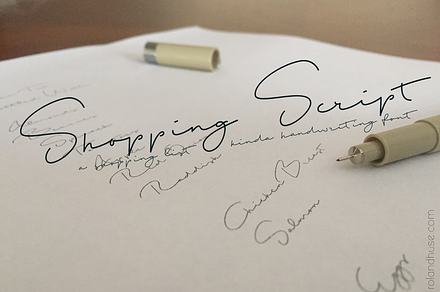 Shopping Script
a shopping list kinda handwriting font
Radish
Chicken Breast
Salmon
Eggs
rolandhuse.com